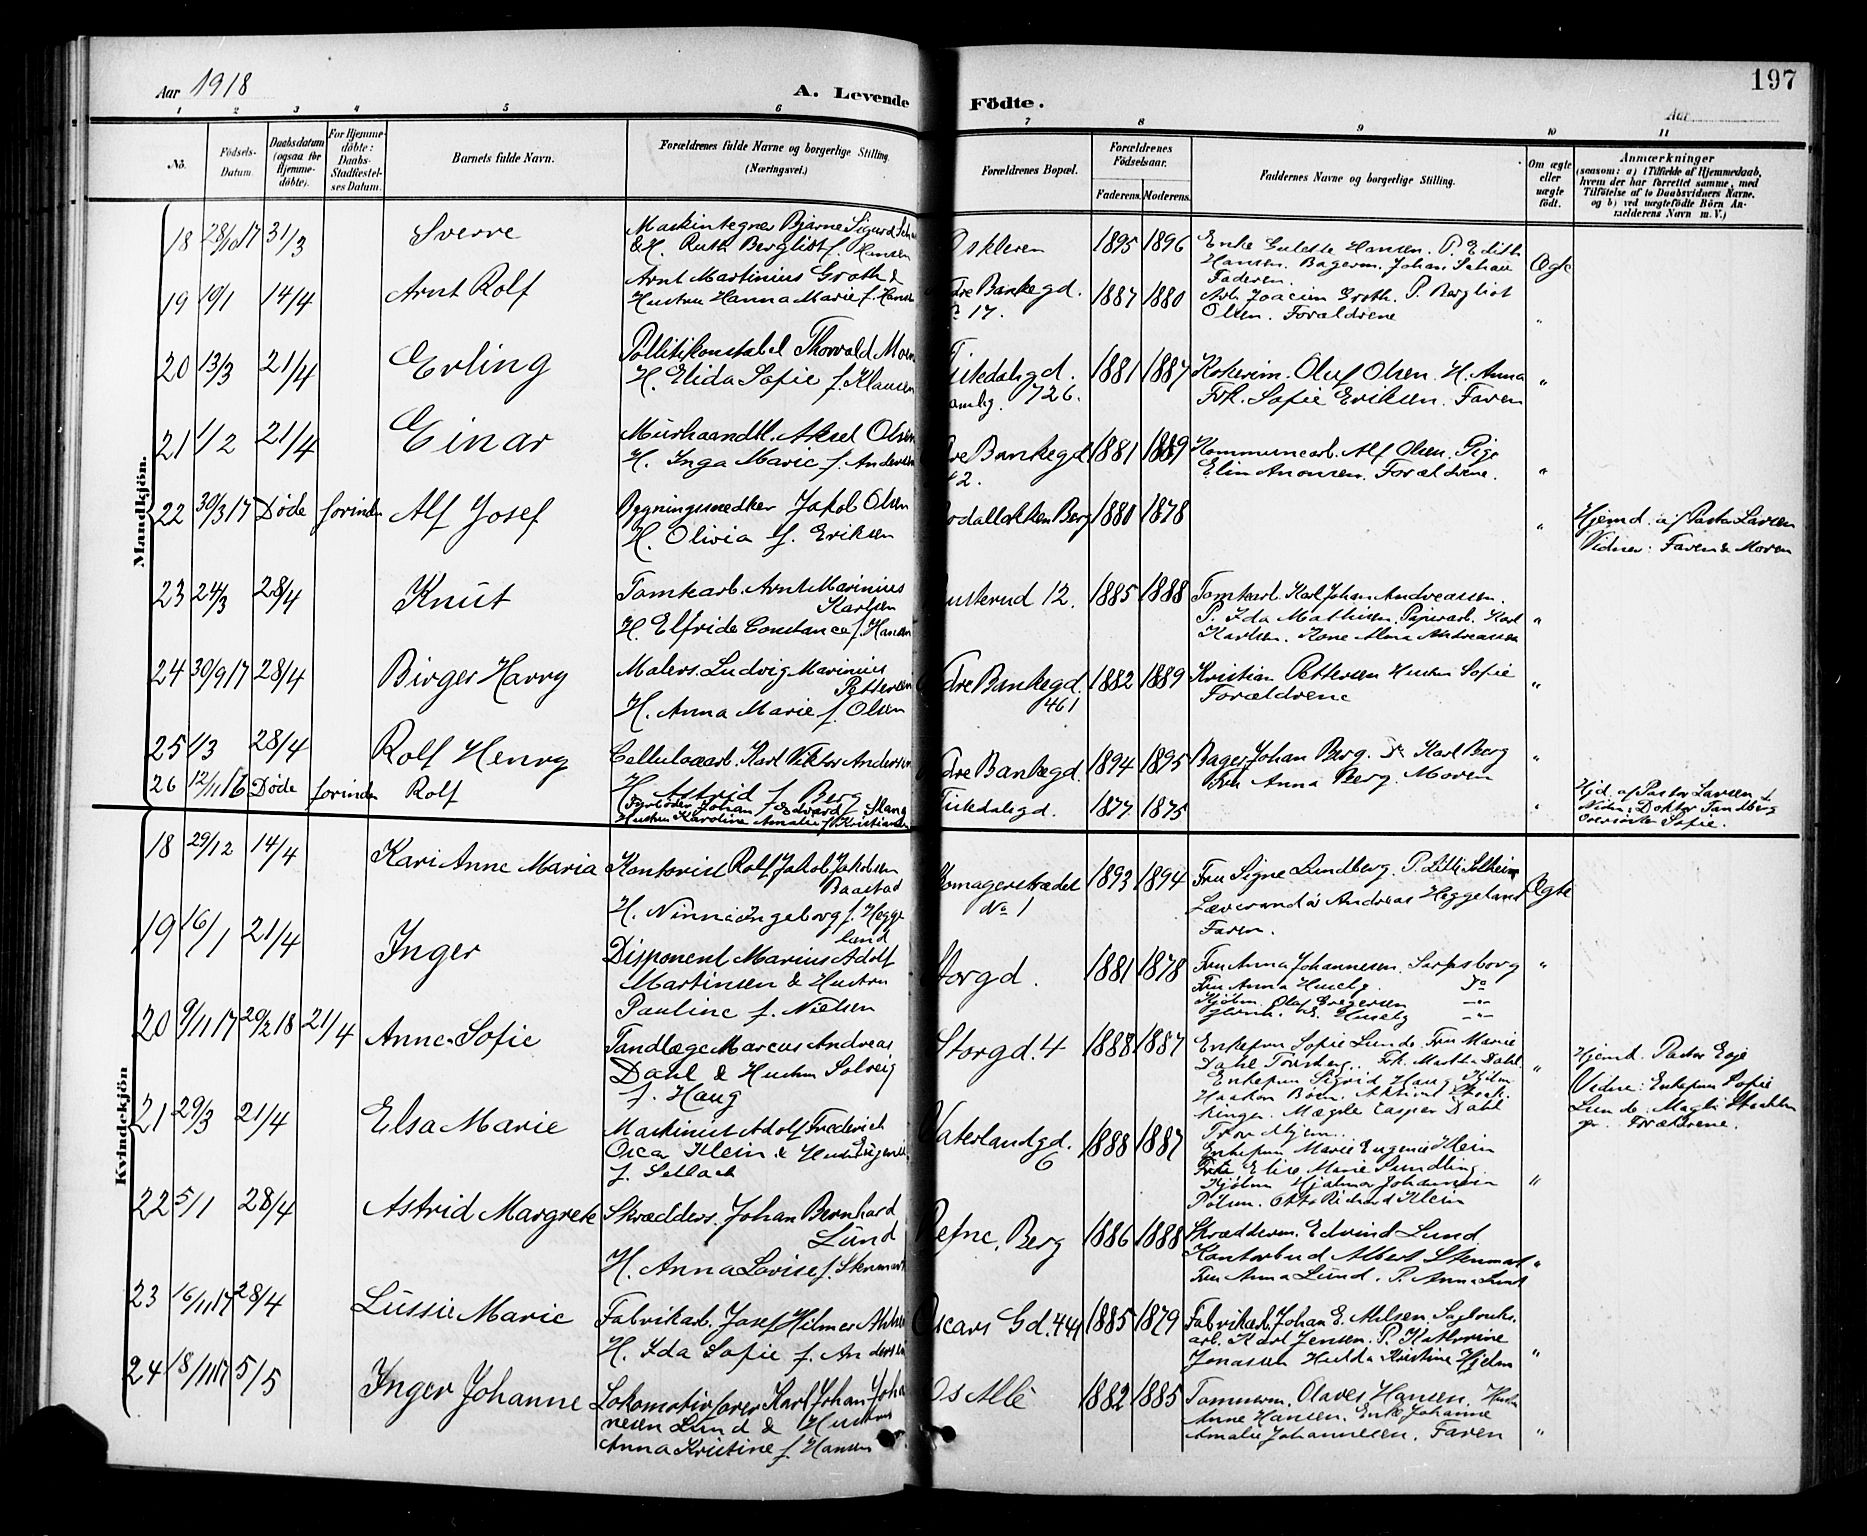 197
Aar 1918
A. Levende Födte.
Aar
1 2 3 4 5 6 7 8 9 10 11
Nö.
Födsels-
Datum.
Daabsdatum
(ogsaa för
Hjemme-
döbte).
For Hjemme-
döbte:
Daabs-
Stadfæstel-
ses Datum.
Barnets fulde Navn.
Forældrenes fulde Navne og borgerlige Stilling
(Næringsvei.)
Forældrenes Bopæl.
Forældrenes
Födselsaar.
Faderens. Moderens.
Faddernes Navne og borgerlige Stilling.
Om ægte
eller
uægte
födt.
Anmærkninger
(saasom: a) i Tilfælde af Hjemmedaab,
hvem der har forrettet samme, med
Tilföielse af to Daabsvidners Navne.
og b) ved uægtefödte Börn An-
mælderens Navn m. V.)
Mandkjön.
18 31/3 Sverre
Maskintegner Bjarne Sigurd
& H. Ruth Bergliot f. Hansen
1895 1896
Hansen. Bagerm. Johan
Faderen. Ægte
19 19/1 14/4 Arnt Rolf
Arnt Martinius Groth &
Hustru Hanna Marie f.
dre Bankegd.
17.
1887 1880
Arb. Joacim Groth. P. Bergliot
Olsen. Forældrene "
20 13/3 21/4 Erling
Politikonstabel Thorvald
H. Elida Sofie f. Klausen
726.
1881 1887
Oluf Olsen. H. Anna
Frk. Sofie Eriksen. Faren "
21 1/2 21/4 Einar
Murhaandtl. Aksel Olsen
H. Inga Marie f. Andersen
dre Bankegd
42.
1881 1889
Kommunearb. Alf Olsen. Pige
Elin Forældrene. "
22 30/3 17 Døde forinden Alf Josef
Bygningssnedker Jakob Olsen
H. Olivia f. Eriksen
Berg
1880 1878 "
Hjemd. af Pastor Larsen
Vidner: Faren & Moren
23 24/3 28/4 Knut
Tomtearb. Arnt Marinius
Karlsen
H. Elfride Constance f. Hansen
usterud 12.
1885 1888
Tomtearb. Karl Johan Andreassen.
P. Ida Mathisen. Papirarb. Karl
Karlsen. Kone Alma Andreassen "
24 30/9 17 28/4 Birger Harry
Malers. Ludvig Marinius
Pettersen
H. Anna Marie f. Olsen
dre Bankegd.
461
1882 1889
Kristian Pettersen Hustru Sofie
Forældrene "
25 1/3 28/4 Rolf Henry
Cellulosearb. Karl Viktor Andersen
H. Astrid f. Berg
dre Bankegd.
1894 1895
Bager Johan Berg. Karl Berg
Anna Berg. Moren "
26 12/11 16 Døde forinden Rolf
Fyrbøder Johan Edvard Stang
Hustru Karoline Amalie f. Kristiansen
Tistedalsgd.
1877 1875 "
Hjd. af Pastor Larsen
Vidn: Doktor Tandberg
Sofie.
Kvindekjön
18 29/12 14/4 Kari Anne Maria
Kontorist Rolf Jakob Jakobsen
Baastad
H. Ninna Ingeborg f. Hegge
land
omagerstrædet
No 1
1893 1894
Fru Signe Lundberg. P. Lilli
Andreas Heggeland
Faren. Ægte
19 16/1 21/4 Inger
Disponent Marius Adolf
Martinsen & Hustru
Pauline f. Nielsen
Storgd.
1881 1878
Fru Anna Johannesen. Sarpsborg
Fru Anna Huseby. Do
Kjøbm. Olaf Gregersen
Huseby "
20 9/11 17 20/2 18 21/4 Anne Sofie
Tandlæge Marcus Andreas
Dahl & Hustru Solveig
f. Haug
Storgd. 4
1888 1887
Enkefru Sofie Lunde Fru Marie
Dahl Torsberg. Frk. Martha Dahl
Enkefru Sigrid Haug Kjøbm
Haakon
Mægler Casper Dahl "
Hjemd. Pastor
Vidne: Enkefru Sofie
Lunde. Magli
Forældrene.
21 29/3 21/4 Elsa Marie
Maskinist Adolf Frederick
Oscar Klein & Hustru Eugenie
f. Sellach
Vaterlandgd.
6
1888 1887
Enkefru Marie Eugenie Klein
Elise Marie Sundling.
Kjøbm Hjalmar Johannesen
Otto Richard Klein "
22 5/1 28/4 Astrid Margrete
Skrædders. Johan Bernhard
Lund
H. Anna Lovise f. Stenmark
Refne, Berg
1886 1888
Skrædderm. Edvind Lund
Kontorbud Albert Stenmark
Fru Anna Lund. P. Anna Lund "
23 16/11 17 28/4 Lussie Marie
Fabrikarb. Josef Hilmer
H. Ida Sofie f. Andersen
Oscars Gd. 44
1885 1879
Fabrikarb. Johan E. Nilsen.
arb. Karl Jensen. P. Kathrine
Jonassen Hulda Kristine Hjelm "
24 18/11 17 5/5 Inger Johanne
Lokomotivfører Karl Johan Joha
nesen Lund & Hustru
Anna Kristine f. Hansen
Os Allé
1882 1885
Tømmerm. Olaves Hansen. Hustru
Anne Hansen. Enke Johanne
Amalie Johannesen. Faren "